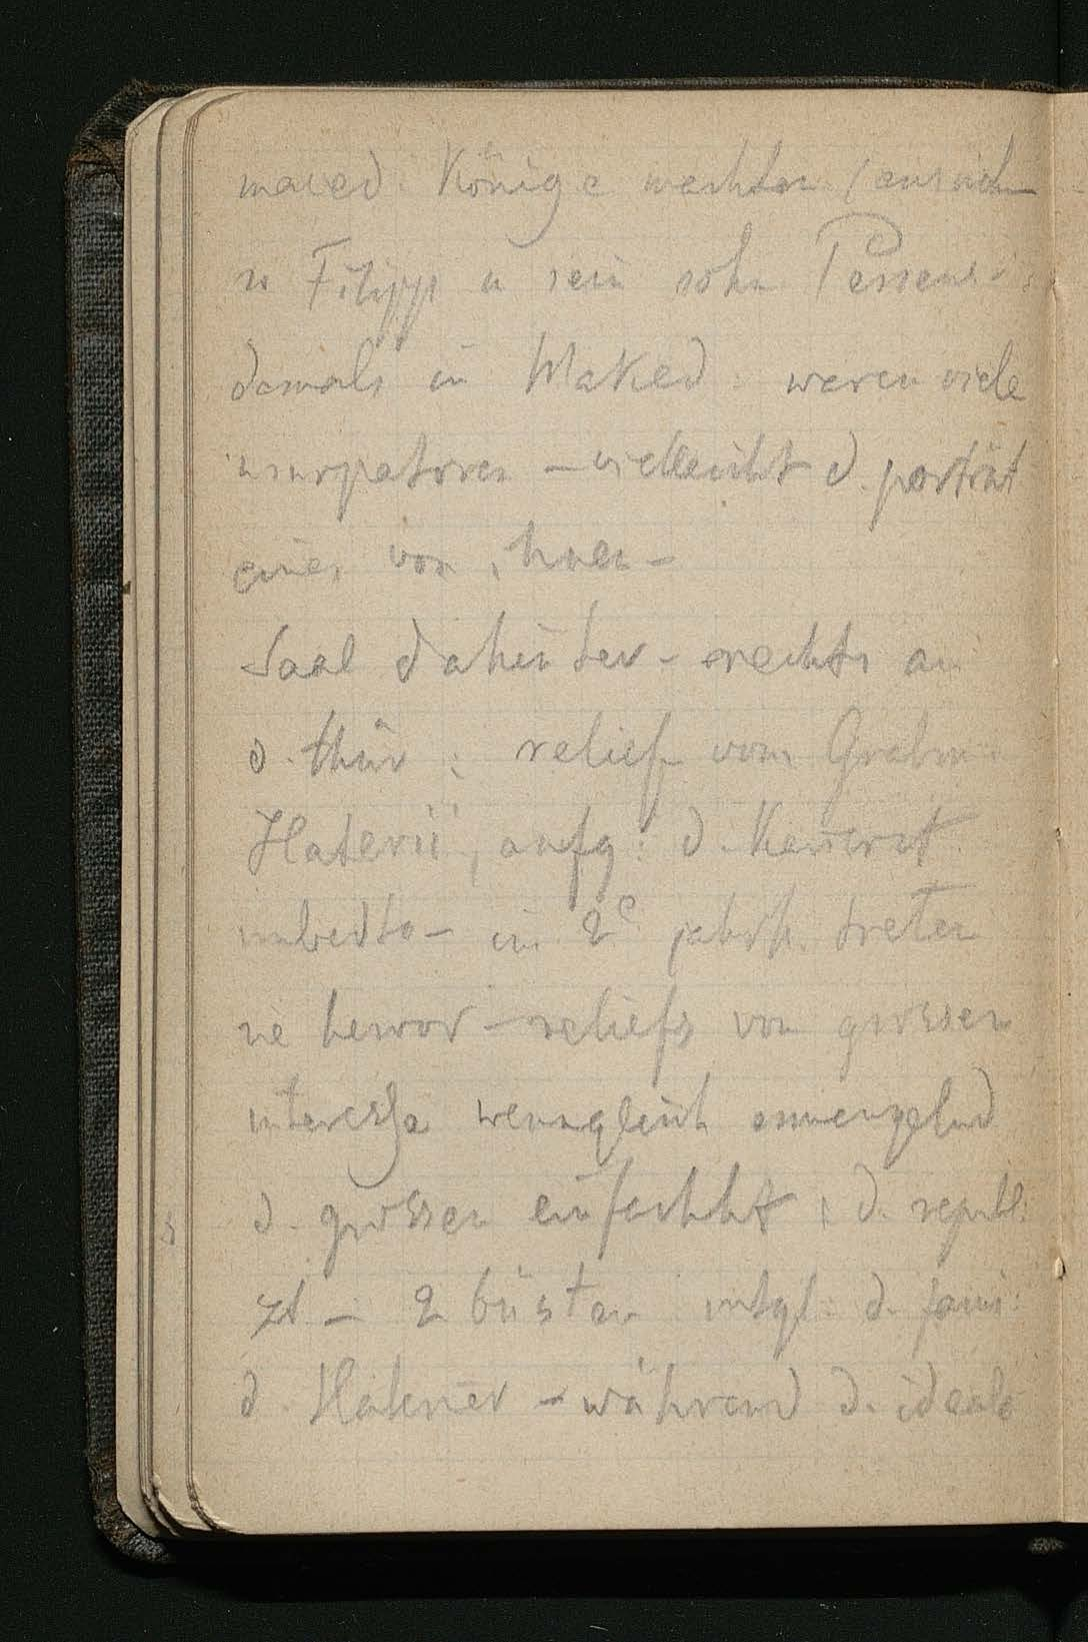 maced. Könige
u Filipp u sein sohn Perseus
damals in Maked: waren viele
usurpatoren – vielleicht d. porträt
eines von ihnen –
Saal dahinter – rechts an
d. thür: relief vom Grabm:
Haterii, anfg: d. Kaiserzt
in 2e jahrh. treten
sie hervor – reliefs von grossen
interesse wenngleich
d. grossen einfachht d. republ:
zt – 2 büsten mtgl: d. fami:
d. Haterier – während d. ideale